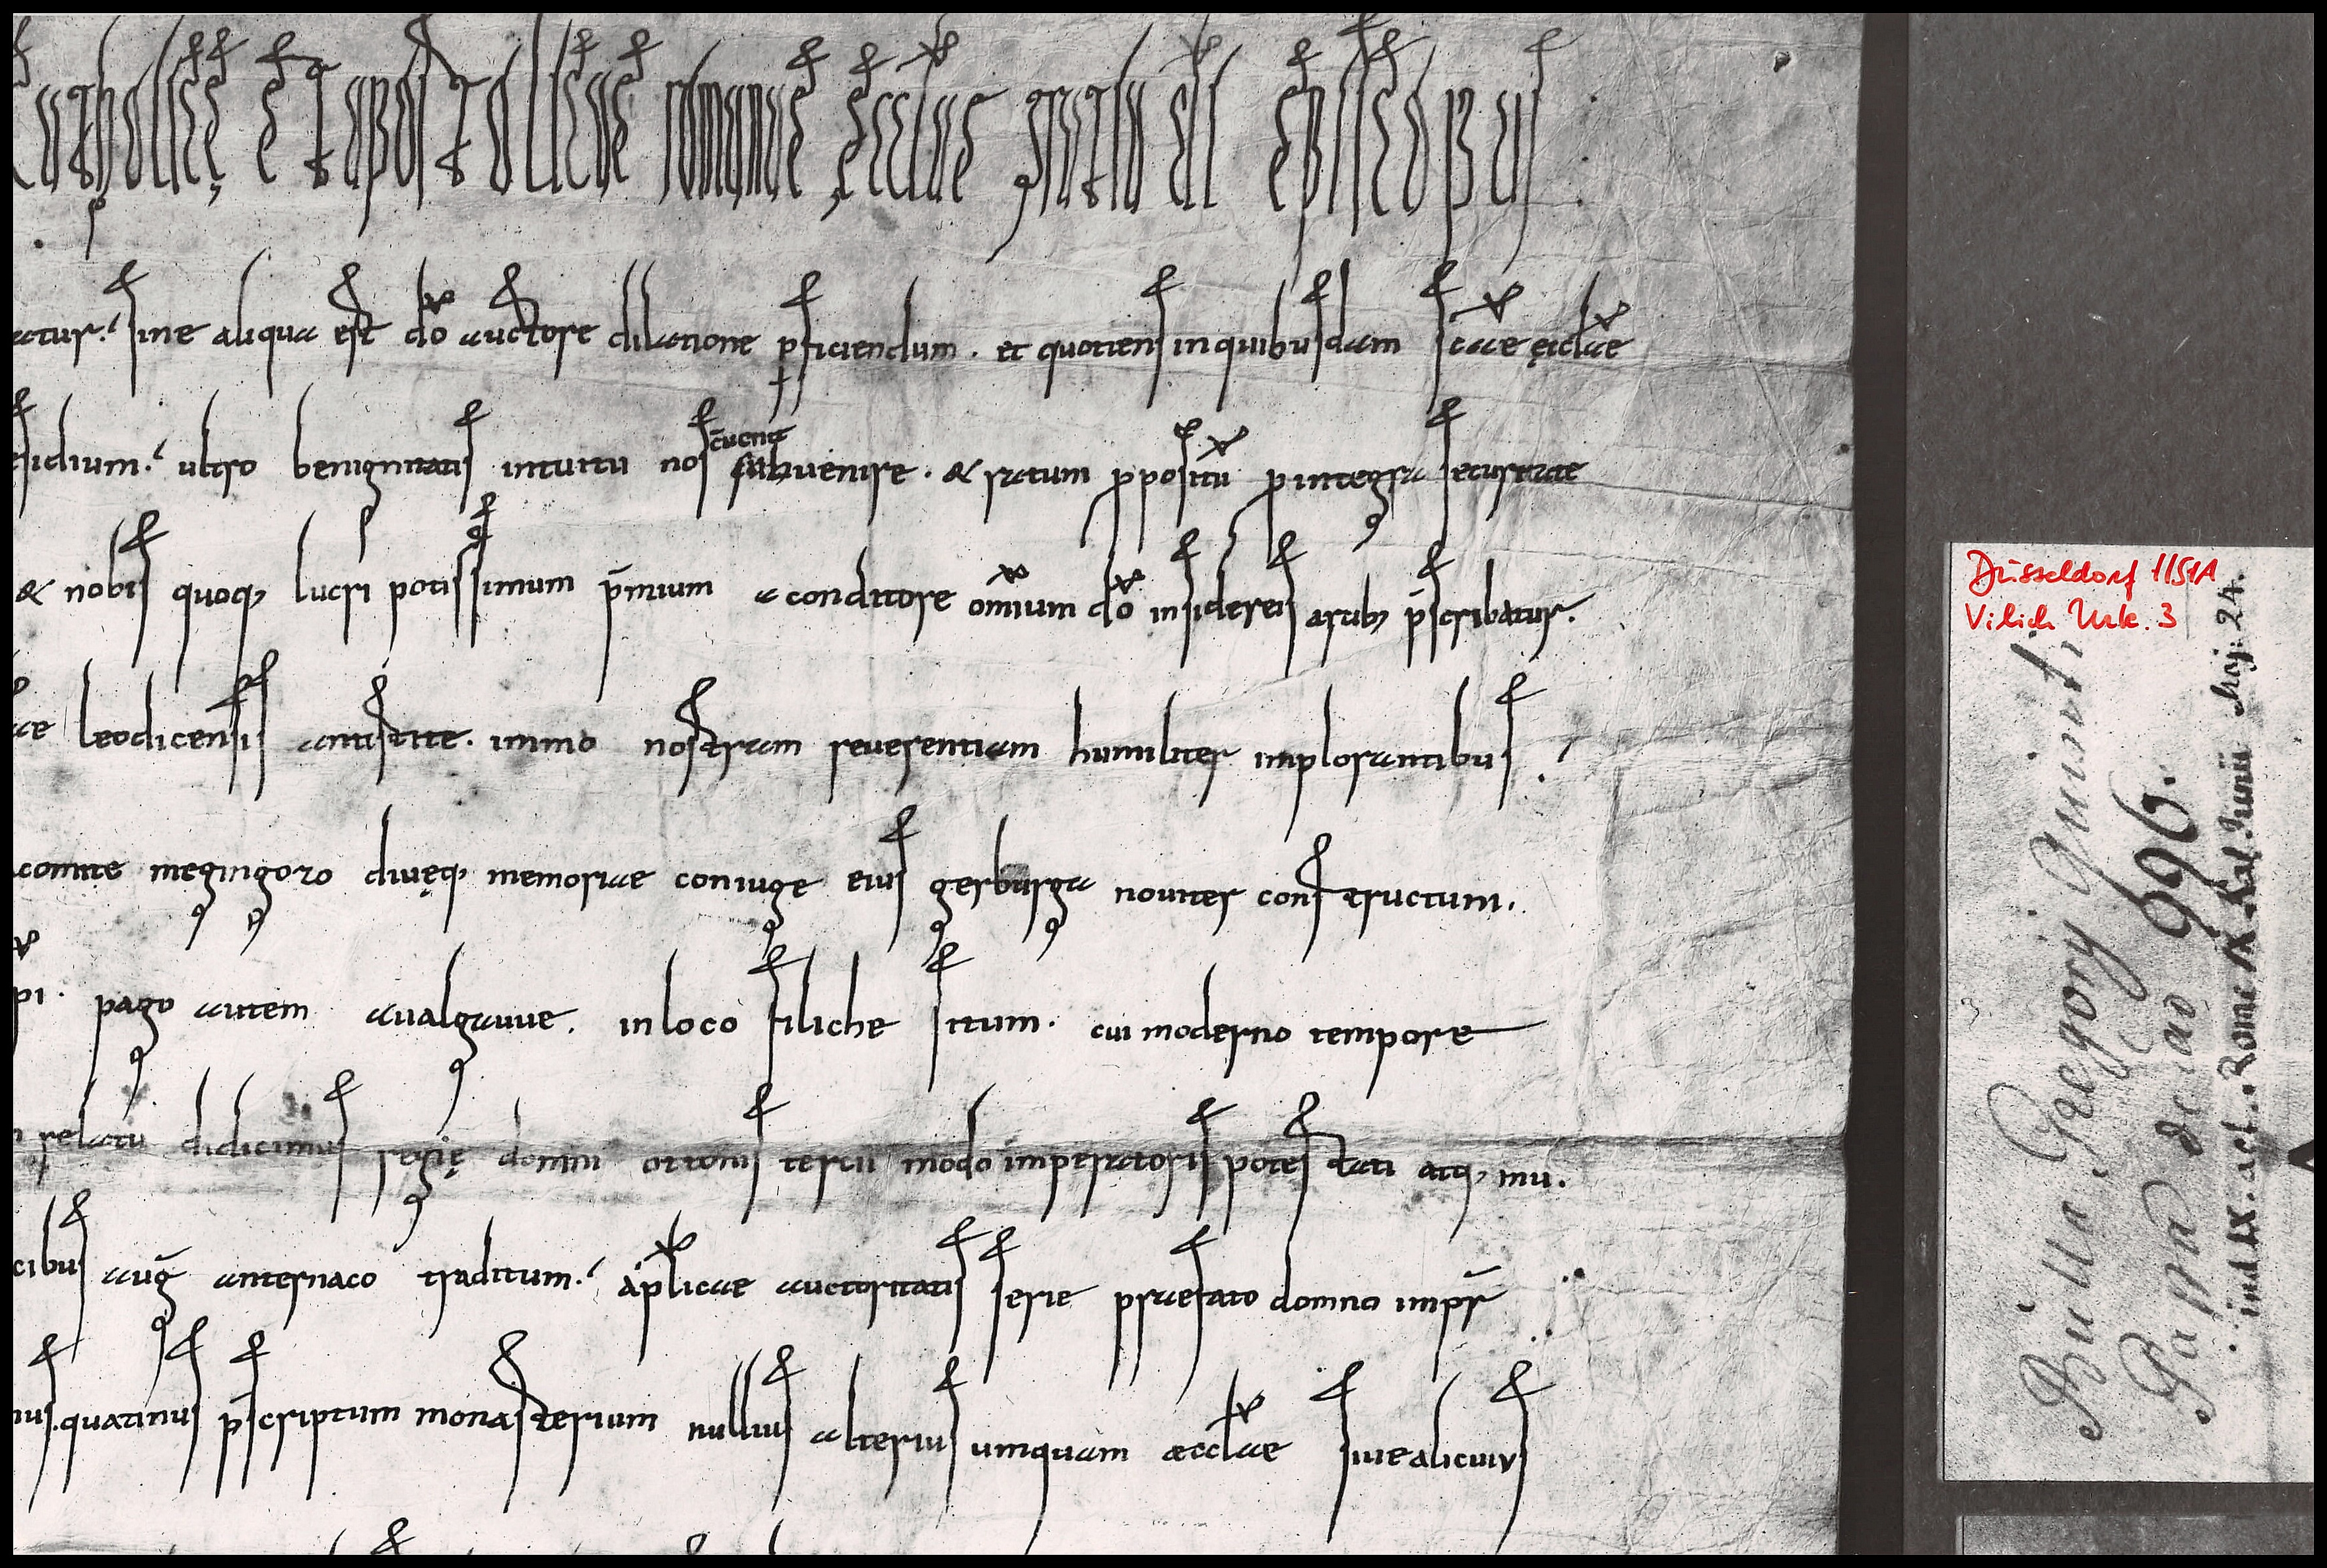 catholicę et apostolicae romanae ęcclae gratia di episcopus
atur. sine aliqua est dō auctore dilatione pficiendum. et quotiens in quibusdam scāe ęcclāe
esidium. ultro benignitatis intuitu nos subvenire. & ratum ppositū pintegra securitate
& nobis quoq, lucri potissimum p̄mium a conditore om̄ium dō in sidereis arcib, p̄scribatur.
ae leodicensis antistite. immo nostram reverentiam humiliter implorantibus
comite megingozo divęq, memoriae coniuge eius gerburga noviter constructum.
pi. pago autem avalgauue. in loco filiche situm. cui moderno tempore
relatu didicimus regię domni ottonis tertii modo imperatoris potestati atq, mu.
cibus aug̅ anternaco traditum. aplicae auctoritatis serie praefato domno impr̄
nus. quatinus p̄scriptum monasterium nullius alterius umquam aecclae sive alicuius
Düsseldorf HStA
Vilich Urk. 3
Bulla Gregorij Quinti
Papa de aō 996.
ind. IX. act. Rome IX. Kal. Junii Maj. 24.